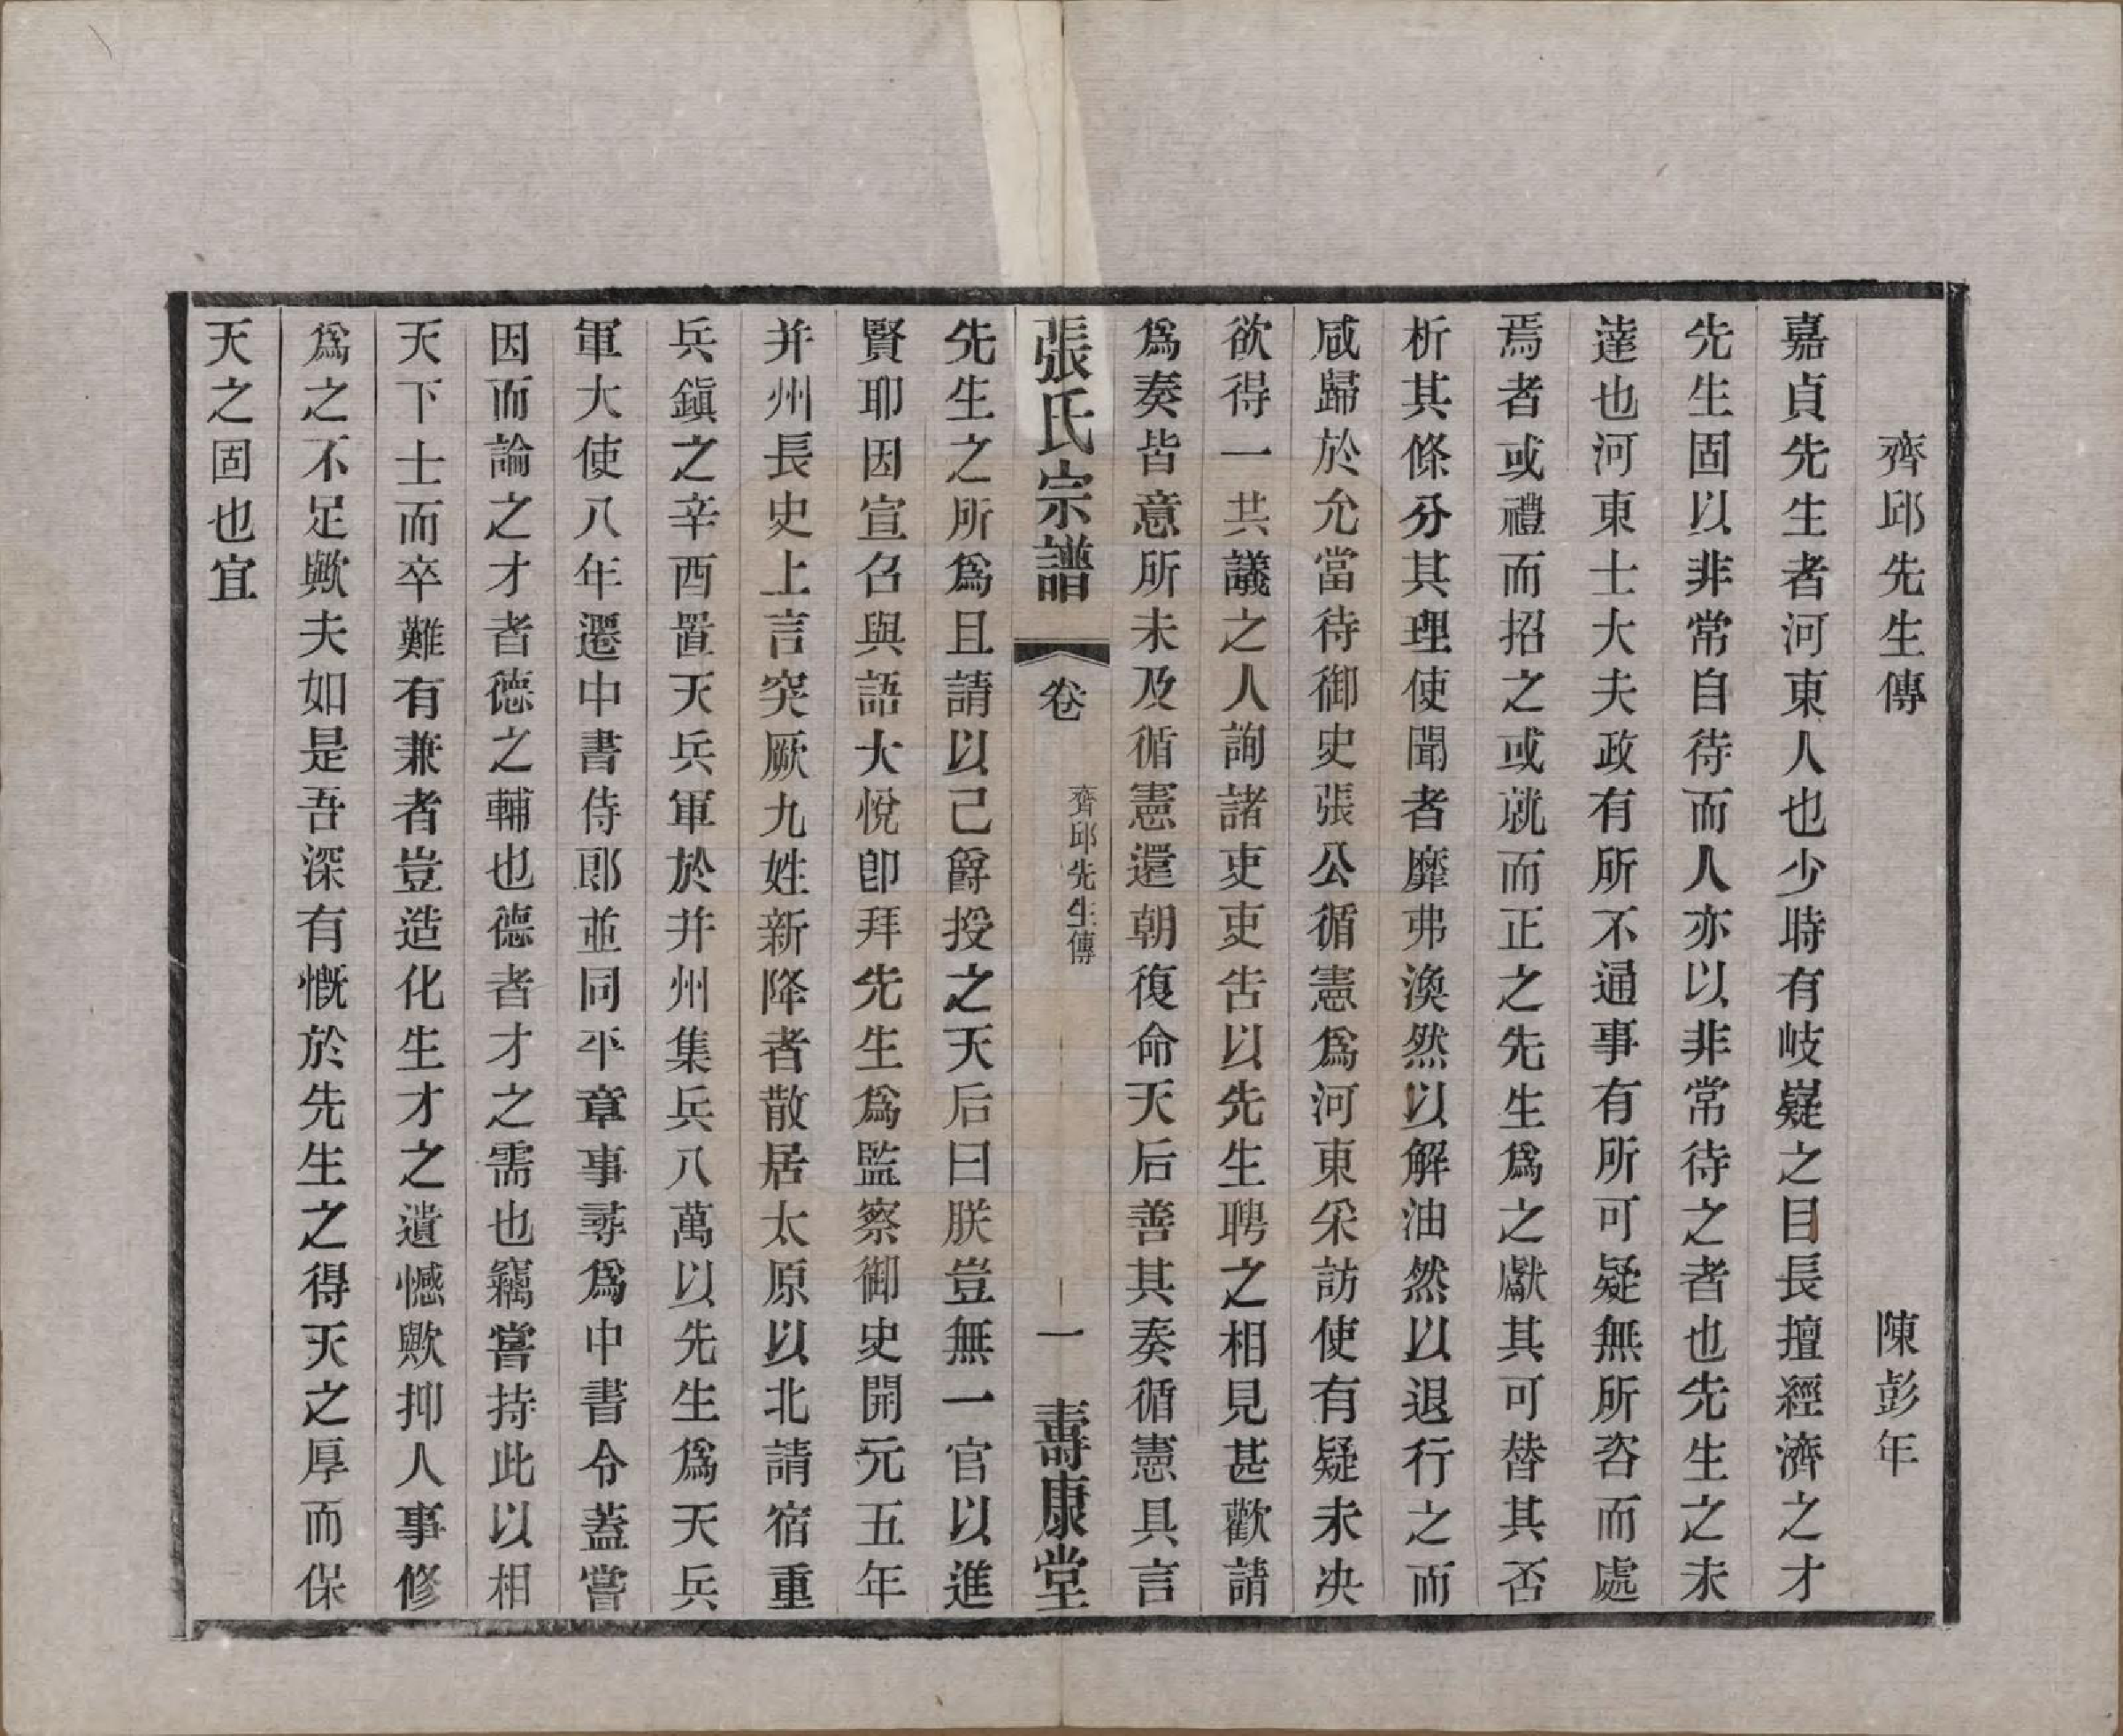 齊邱先生傳　陳彭年
嘉貞先生者河東人也少時有岐嶷之目長擅經濟之才
先生固以非常自待而人亦以非常待之者也先生之未
達也河東士大夫政有所不通事有所可疑無所咨而處
焉者或禮而招之或就而正之先生爲之獻其可替其否
析其條分其理使聞者靡弗渙然以解油然以退行之而
咸歸於允當待御史張公循憲爲河東采訪使有疑未決
欲得一共議之人詢諸吏吏告以先生聘之相見甚歡請
爲奏皆意所未及循憲還朝復命天后善其奏循憲具言
張氏宗譜　卷　齊邱先生傳　一　壽康堂
先生之所爲且請以己爵授之天后曰朕豈無一官以進
賢耶因宣召與語大悅卽拜先生爲監察御史開元五年
并州長史上言突厥九姓新降者散居太原以北請宿重
兵鎭之辛酉置天兵軍於并州集兵八萬以先生爲天兵
軍大使八年遷中書侍郎並同平章事尋爲中書令蓋嘗
因而論之才者德之輔也德者才之需也竊嘗持此以相
天下士而卒難有兼者豈造化生才之遺憾歟抑人事修
爲之不足歟夫如是吾深有慨於先生之得天之厚而保
天之固也宜